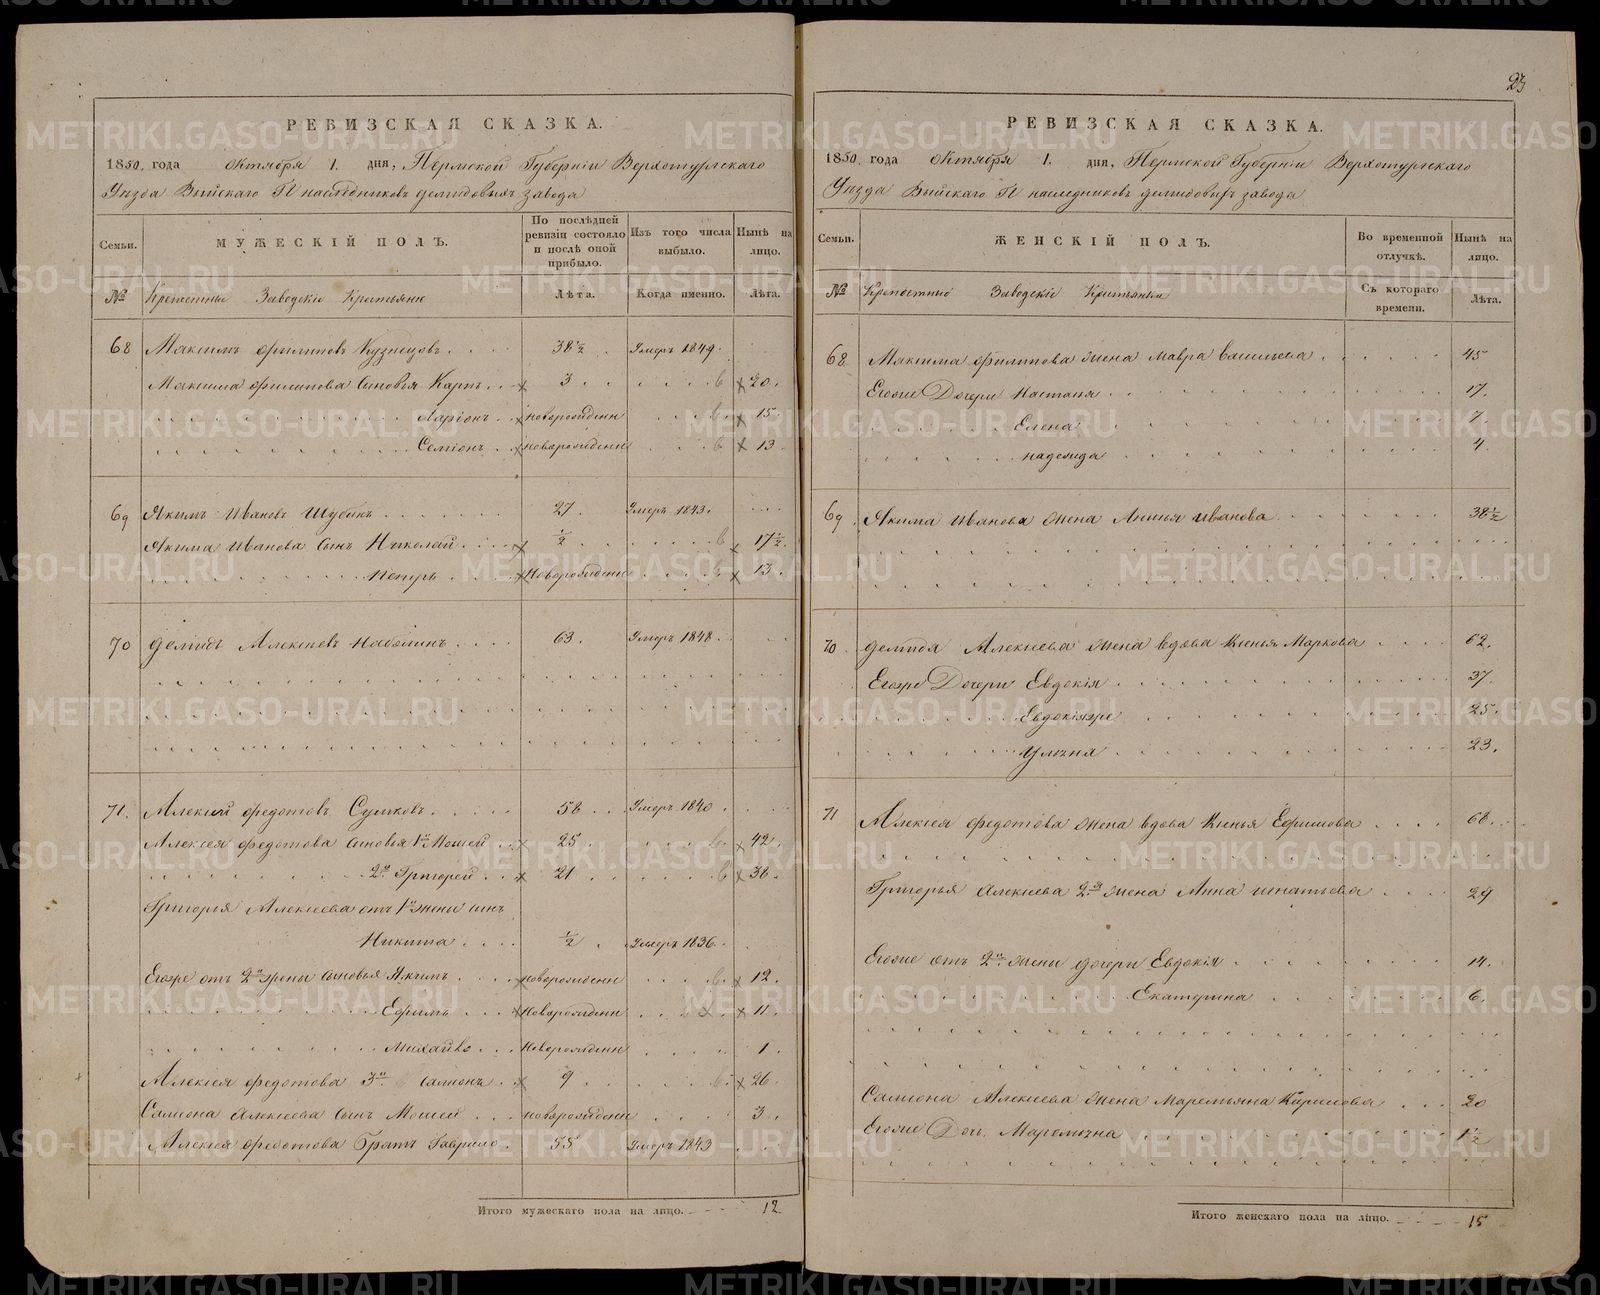 РЕВИЗСКАЯ СКАЗКА.
1850. года октября 1. дня, Пермской Губернiи Верхотурскаго
Уезда Выйскаго Гг наследниковъ демидовыхъ завода
Семьи.
МУЖЕСКІЙ ПОЛЪ.
По послѣдней ревизіи состояло и послѣ оной прибыло.
Изъ того числа выбыло.
Нынѣ на лицо.
№ Крепостные Заводскіе Крестьяне
Лѣта.
Когда именно.
Лѣта.
68 Максимъ филиповъ Кузнецовъ. 38½ Умеръ 1849.
Максима филипова Сыновья Карпъ. 3 20.
Ларіонъ. новорожденн 15.
Семіонъ. новорожденн 13.
69 Якимъ Ивановъ Шубинъ 27. Умеръ 1843.
Якима Иванова Сынъ Николай ½ 17½.
Петръ Новорожденн 13.
70 демидъ Алексеевъ 63. Умеръ 1848.
71. Алексей федотовъ Сушковъ 58 Умеръ 1840
Алексея федотова сыновья 1й Мосей 25 42.
2й Григорей 21 38.
Григорья Алексеева отъ 1й жены сынъ
Никита ½ Умеръ 1836.
Егоже отъ 2й жены сыновья Якимъ новорожденн 12.
Ефимъ Новорожденн 11.
михайло Новорожденн 1.
Алексея федотова 3й самсонъ 9 26.
Самсона алексеева сынъ Мосей новорожденн 3.
Алексея федотова Братъ Гаврило. 55 Умеръ 1843
Итого мужескаго пола на лицо. 12
23
РЕВИЗСКАЯ СКАЗКА.
1850. года октября 1. дня, Пермской Губернiи Верхотурскаго
Уезда Выйскаго Гг наследниковъ демидовыхъ завода
Семьи.
ЖЕНСКІЙ ПОЛЪ.
Во временной отлучкѣ.
Нынѣ на лицо.
№ Крепостные Заводскіе Крестьяне
Съ котораго времени.
Лѣта.
68 Максима филипова жена мавра васильева 45
Егоже Дочери Настасья 17.
Елена 7.
надежда 4
69 Якима иванова жена Анисья иванова 38½
70 демида Алексеева жена вдова Ксенья Маркова 62.
Егоже Дочери Евдокія 37.
Евдокіяже 25.
Улита 23.
71 Алексея федотова жена вдова Ксенья Ефимова 68.
Григорья алексеева 2я жена Анна игнатьева 29
Егоже отъ 2й жены дочери Евдокія 14.
Екатерина 6.
Самсона Алексеева жена Маремьяна Кирилова 20
Егоже Дочь 1½
Итого женскаго пола на лицо. 15
METRIKI.GASO-URAL.RU